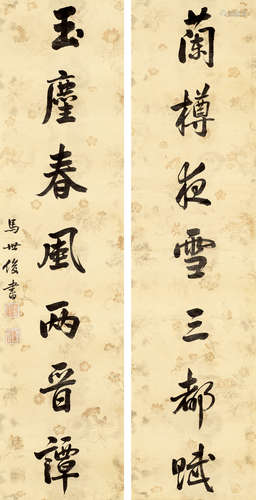 蘭樽夜雪三都賦
玉麈春風両晉譚
馬世俊書